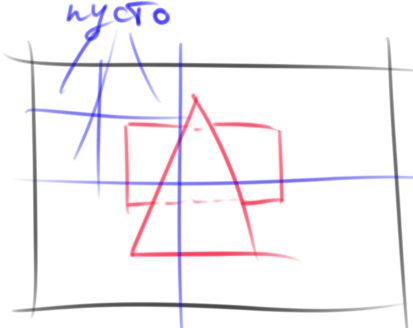 пусто